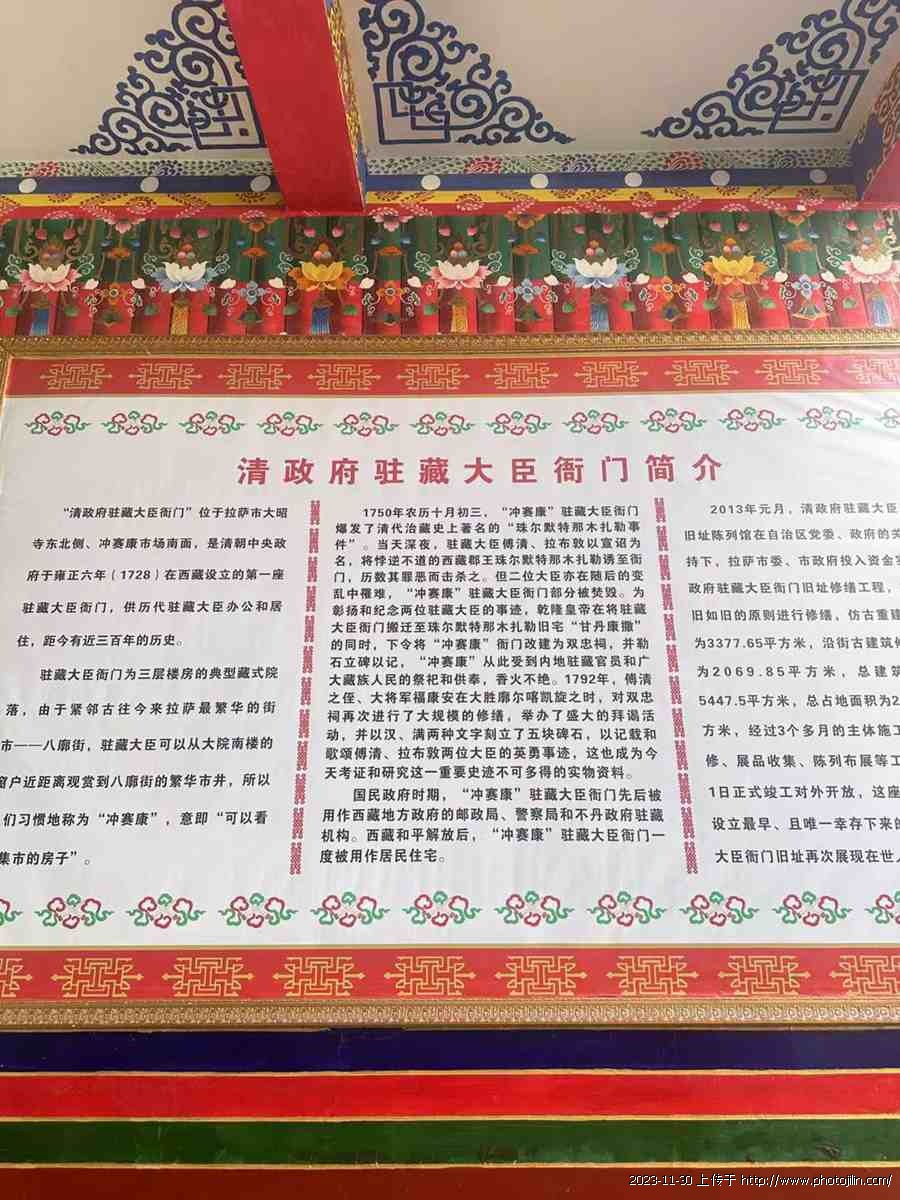 清政府驻藏大臣衙门简介
“清政府驻藏大臣衙门”位于拉萨市大昭
寺东北侧、冲赛康市场南面，是清朝中央政
府于雍正六年（1728）在西藏设立的第一座
驻藏大臣衙门，供历代驻藏大臣办公和居
住，距今有近三百年的历史。
驻藏大臣衙门为三层楼房的典型藏式院
落，由于紧邻古往今来拉萨最繁华的街
市——八廓街，驻藏大臣可以从大院南楼的
窗户近距离观赏到八廓街的繁华市井，所以
们习惯地称为“冲赛康”，意即“可以看
集市的房子”。
1750年农历十月初三，“冲赛康”驻藏大臣衙门
爆发了清代治藏史上著名的“珠尔默特那木扎勒事
件”。当天深夜，驻藏大臣傅清、拉布敦以宣诏为
名，将悖逆不道的西藏郡王珠尔默特那木扎勒诱至衙
门，历数其罪恶而击杀之。但二位大臣亦在随后的变
乱中罹难，“冲赛康”驻藏大臣衙门部分被焚毁。为
彰扬和纪念两位驻藏大臣的事迹，乾隆皇帝在将驻藏
大臣衙门搬迁至珠尔默特那木扎勒旧宅“甘丹康撒”
的同时，下令将“冲赛康”衙门改建为双忠祠，并勒
石立碑以记，“冲赛康”从此受到内地驻藏官员和广
大藏族人民的祭祀和供奉，香火不绝。1792年，傅清
之侄、大将军福康安在大胜廓尔喀凯旋之时，对双忠
祠再次进行了大规模的修缮，举办了盛大的拜谒活
动，并以汉、满两种文字刻立了五块碑石，以记载和
歌颂傅清、拉布敦两位大臣的英勇事迹，这也成为今
天考证和研究这一重要史迹不可多得的实物资料。
国民政府时期，“冲赛康”驻藏大臣衙门先后被
用作西藏地方政府的邮政局、警察局和不丹政府驻藏
机构。西藏和平解放后，“冲赛康”驻藏大臣衙门一
度被用作居民住宅。
2013年元月，清政府驻藏大臣
旧址陈列馆在自治区党委、政府的关
持下，拉萨市委、市政府投入资金
政府驻藏大臣衙门旧址修缮工程，
旧如旧的原则进行修缮，仿古重建
为3377.65平方米，沿街古建筑修
为2069.85平方米，总建筑
5447.5平方米，总占地面积为2
方米，经过3个多月的主体施工
修、展品收集、陈列布展等工
1日正式竣工对外开放，这座
设立最早、且唯一幸存下来的
大臣衙门旧址再次展现在世人
2023-11-30 上传于 http://www.photojilin.com/